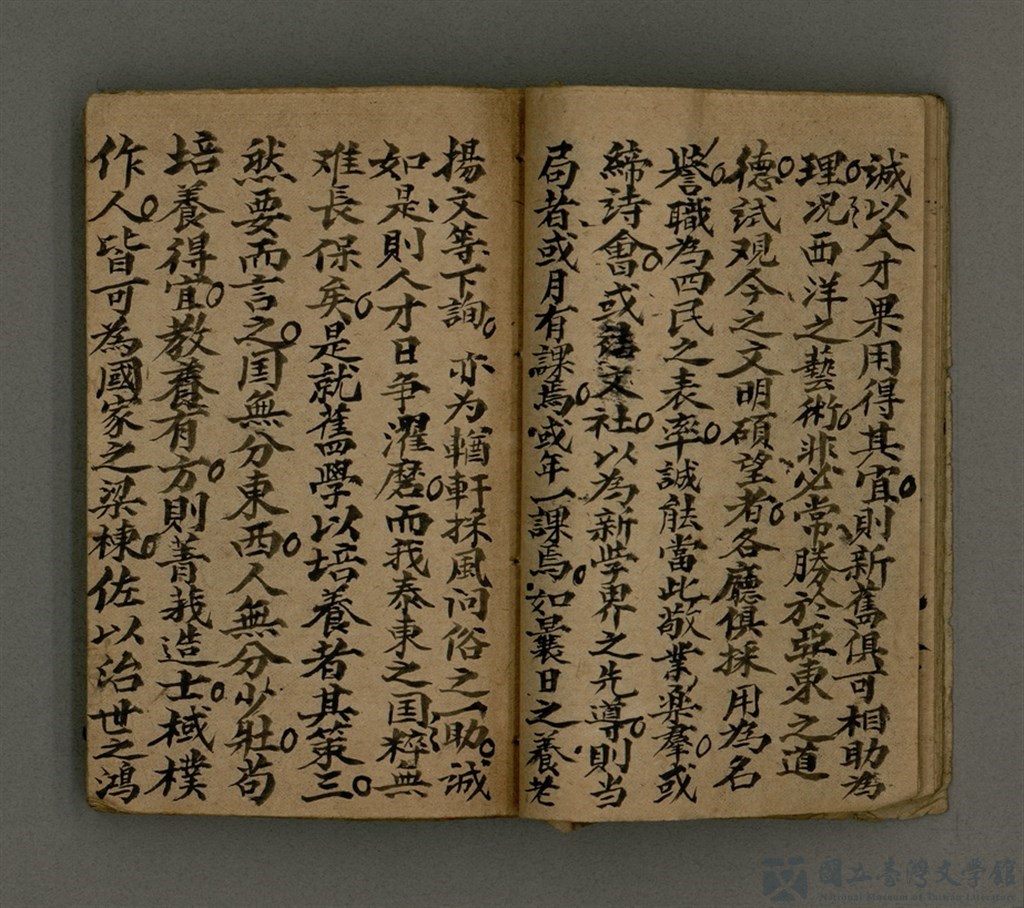 誠以人才果用得其宜。則新舊俱可相助為
理。况西洋之藝術。非必常勝於亞東之道
德。試观今之文明碩望者。各廳俱採用為名
譽職。為四民之表率。誠能當此敬業樂羣。或
締詩會。或文社。以為新学界之先導。則当
局者或月有課焉。或年一課焉。如曩日之養老
揚文等下詢。亦为輶軒採風问俗之一助。诚
如是則人才日争濯磨。而我泰東之国粹無
难長保矣。是就舊學以培養者其策三。
然要而言之。国無分東西。人無分少壯。苟
培養得宜。教養有方。則菁莪造士。棫樸
作人。皆可為國家之梁棟。佐以治世之鴻
國立臺灣文學館
National Museum of Taiwan Literature